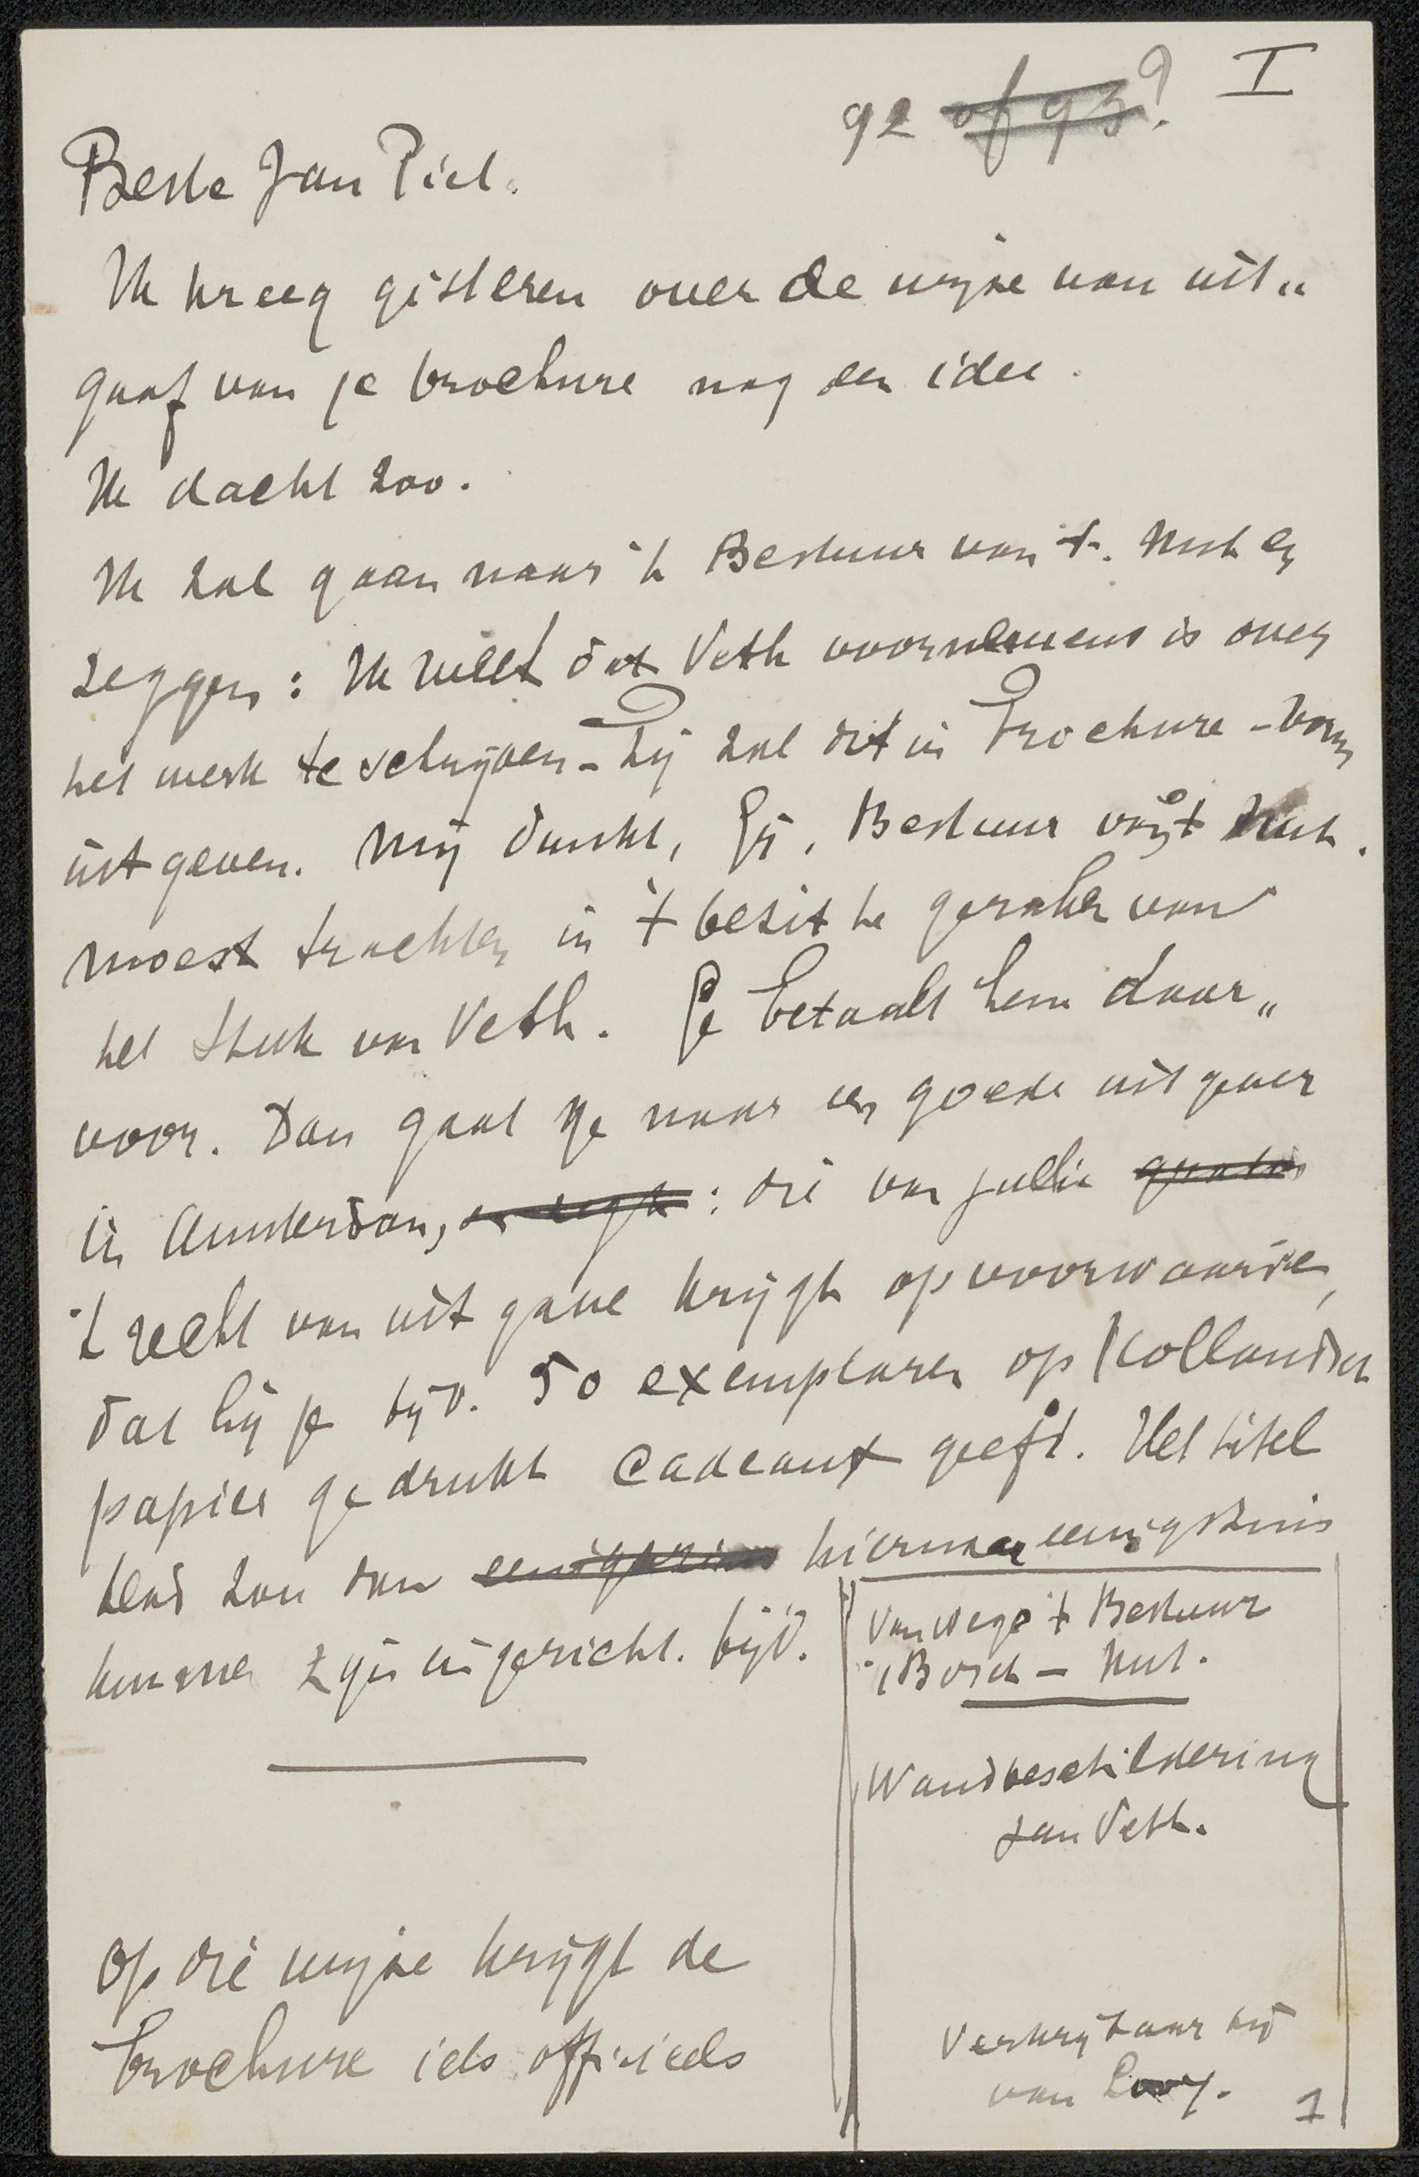 92 of 93? I
Beste Jan Piet.
Ik kreeg gisteren over de wijze van uit„
gaaf van je brochure nog een idee.
Ik dacht zoo.
Ik zal gaan naar 't Bestuur van 't. Nut en
zeggen: Ik weet dat Veth voornemens is over
het werk te schrijven – hij zal dit in brochure-vorm
uitgeven. Mij dunkt, Gij, Bestuur van 't Nut.
moest trachten in 't bezit te geraken van
het stuk van Veth. Je betaalt hem daar„
voor. Dan gaat ge naar een goede uitgever
in Amsterdam, en zegt: die van jullie gratis
't recht van uitgave krijgt op voorwaarde,
dat hij je bijv. 50 exemplaren op Hollandsch
papier gedrukt cadeaux geeft. Het titel
blad zou dan eenigszins hiernaar eenigszins
kunnen zijn ingericht. bijv.
Vanwege 't Bestuur
't Bosch – Nut.
Wandbeschildering
Jan Veth.
Verkrijgbaar bij
van Looy.
Op die wijze krijgt de
brochure iets officieels
1